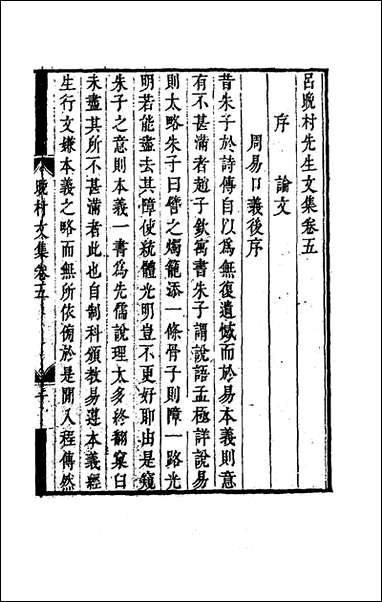 呂晚村先生文集卷五
序　論文
周易口義後序
昔朱子於詩傳自以爲無復遺憾而於易本義則意
有不甚滿者趙子欽寓書朱子謂說語孟極詳說易
則太略朱子曰譬之燭籠添一條骨子則障一路光
明若能盡去其障使統體光明豈不更好耶由是窺
朱子之意則本義一書爲先儒說理太多終翻窠臼
未盡其所不甚滿者此也自制科頒教易遵本義經
生行文嫌本義之略而無所依傍於是闌入程傳然
晚村文集卷五